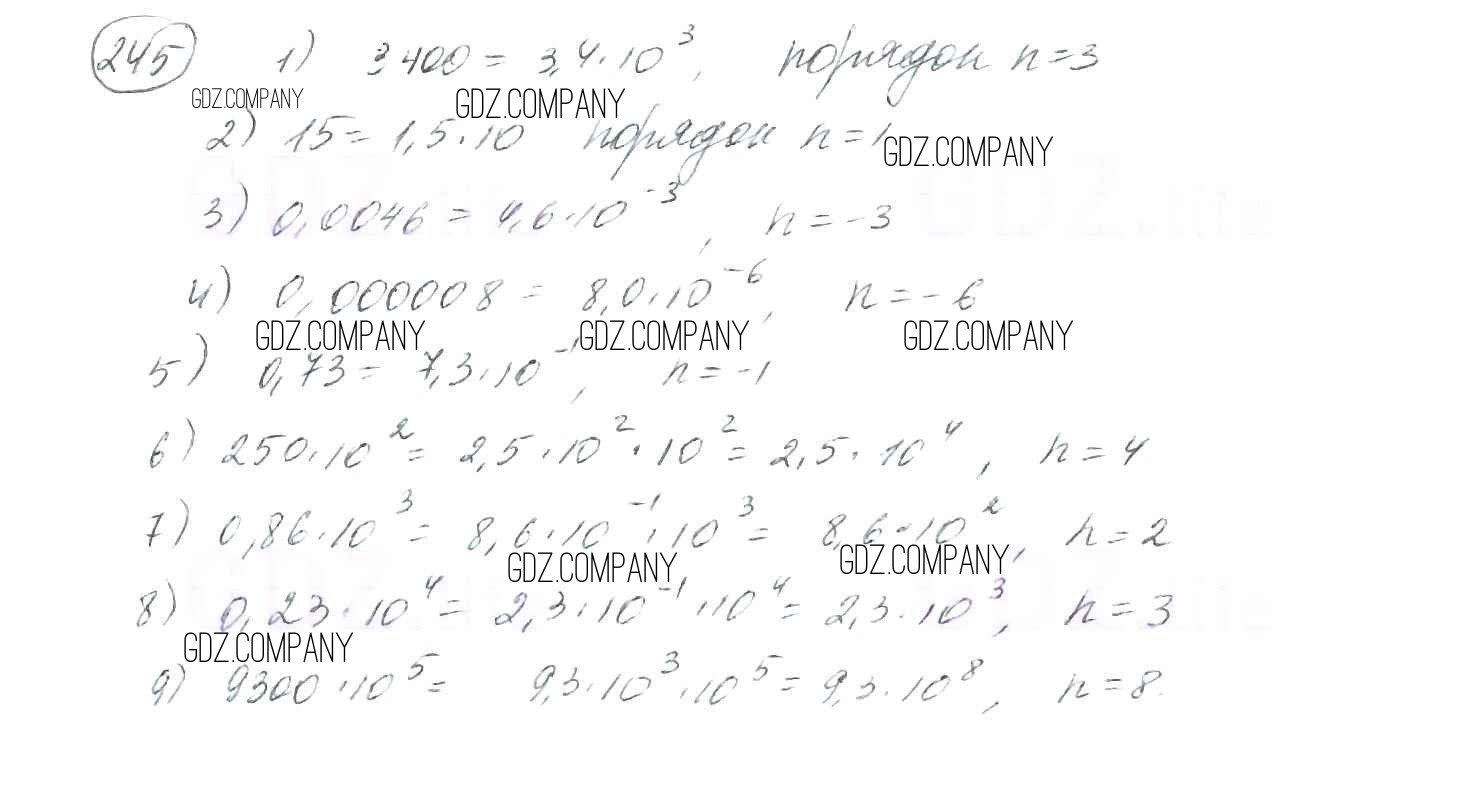 245 1) 3400 = 3,4·10³, порядок n=3
GDZ.COMPANY GDZ.COMPANY
2) 15 = 1,5·10 порядок n=1
GDZ.COMPANY
3) 0,0046 = 4,6·10⁻³, n=-3
4) 0,000008 = 8,0·10⁻⁶, n=-6
GDZ.COMPANY GDZ.COMPANY GDZ.COMPANY
5) 0,73 = 7,3·10⁻¹, n=-1
6) 250·10² = 2,5·10²·10² = 2,5·10⁴, n=4
7) 0,86·10³ = 8,6·10⁻¹·10³ = 8,6·10², n=2
GDZ.COMPANY GDZ.COMPANY
8) 0,23·10⁴ = 2,3·10⁻¹·10⁴ = 2,3·10³, n=3
GDZ.COMPANY
9) 9300·10⁵ = 9,3·10³·10⁵ = 9,3·10⁸, n=8.